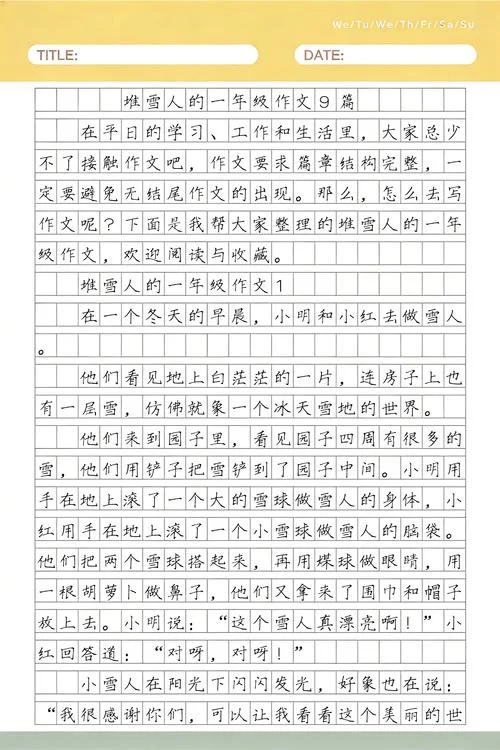 We/Tu/We/Th/Fr/Sa/Su
TITLE:
DATE:
堆雪人的一年级作文9篇
在平日的学习、工作和生活里，大家总少
不了接触作文吧，作文要求篇章结构完整，一
定要避免无结尾作文的出现。那么，怎么去写
作文呢？下面是我帮大家整理的堆雪人的一年
级作文，欢迎阅读与收藏。
堆雪人的一年级作文1
在一个冬天的早晨，小明和小红去做雪人
。
他们看见地上白茫茫的一片，连房子上也
有一层雪，仿佛就象一个冰天雪地的世界。
他们来到园子里，看见园子四周有很多的
雪，他们用铲子把雪铲到了园子中间。小明用
手在地上滚了一个大的雪球做雪人的身体，小
红用手在地上滚了一个小雪球做雪人的脑袋。
他们把两个雪球搭起来，再用煤球做眼睛，用
一根胡萝卜做鼻子，他们又拿来了围巾和帽子
放上去。小明说：“这个雪人真漂亮啊！”小
红回答道：“对呀，对呀！”
小雪人在阳光下闪闪发光，好象也在说：
“我很感谢你们，可以让我看看这个美丽的世